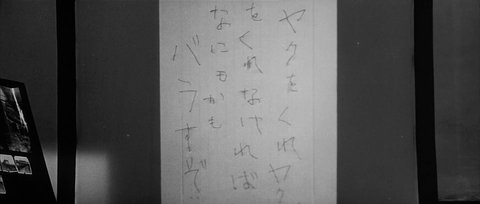 ヤクをくれヤク
をくれなければ
なにもかも
バラすぞ